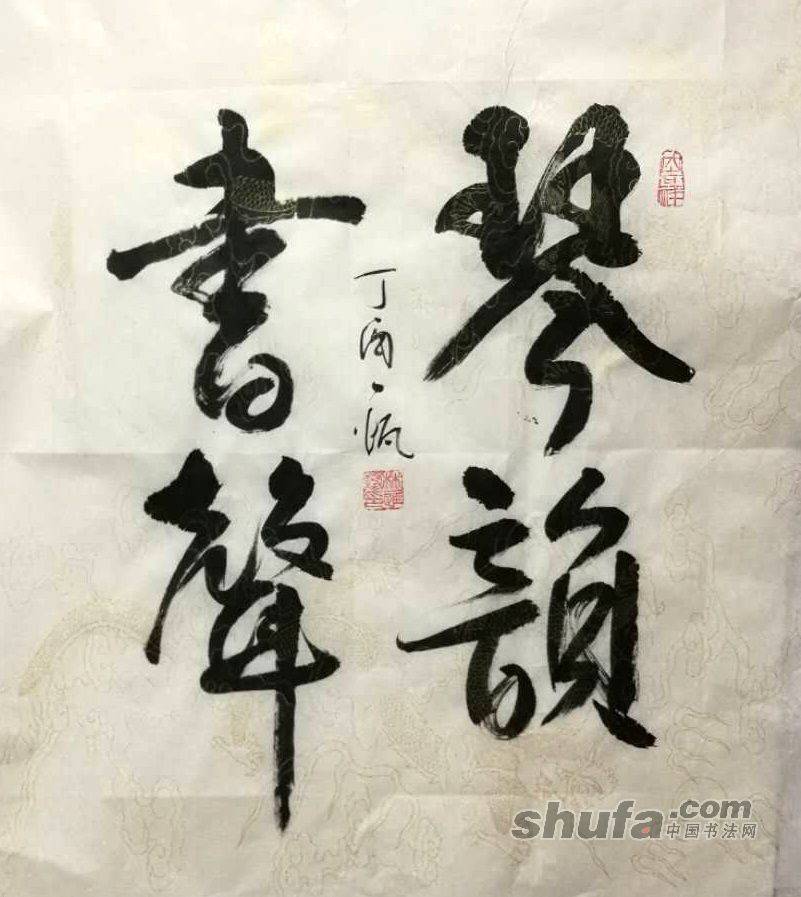 琴韻
書聲
丁酉
shufa.com
中国书法网